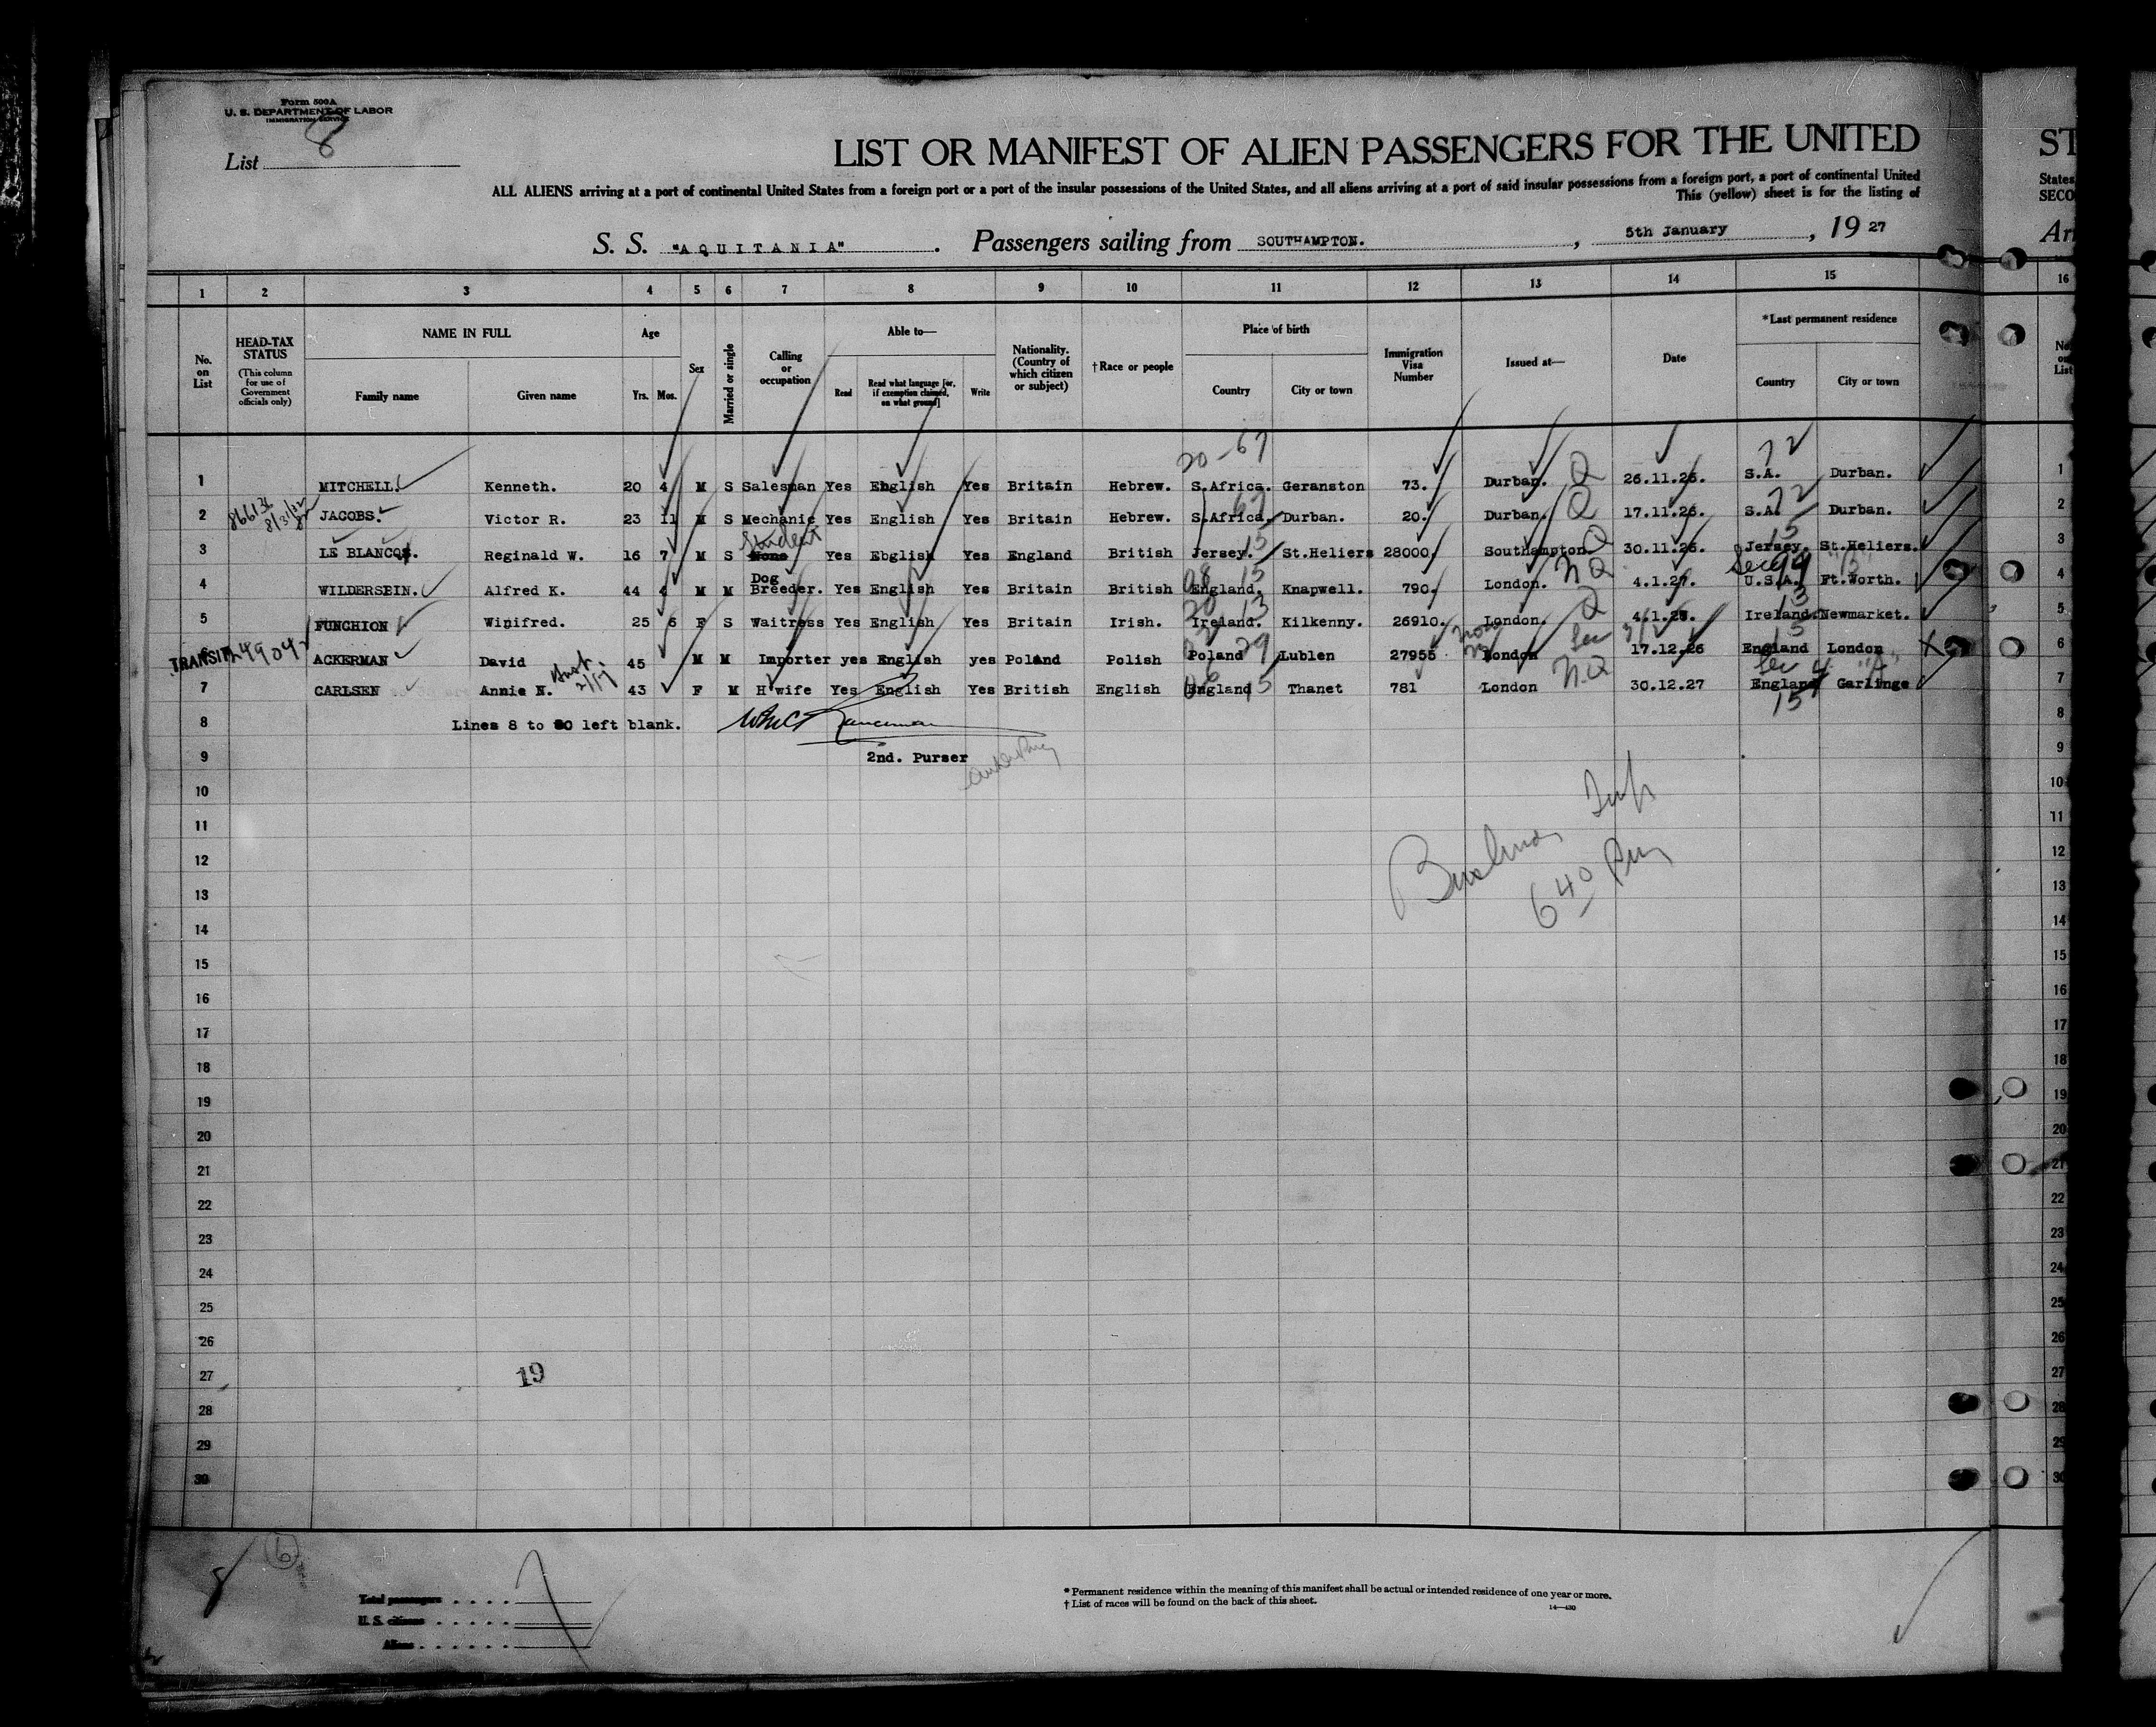 Form 500A
U. S. DEPARTMENT OF LABOR
IMMIGRATION SERVICE
List 8
LIST OR MANIFEST OF ALIEN PASSENGERS FOR THE UNITED
ST
ALL ALIENS arriving at a port of continental United States from a foreign port or a port of the insular possessions of the United States, and all aliens arriving at a port of said insular possessions from a foreign port, a port of continental United
States
This (yellow) sheet is for the listing of
SECO
S. S. "AQUITANIA". Passengers sailing from SOUTHAMPTON. , 5th January , 19 27
Ar
1 2 3 4 5 6 7 8 9 10 11 12 13 14 15 16
No. on List
HEAD-TAX STATUS (This column for use of Government officials only)
NAME IN FULL Family name Given name
Age Yrs. Mos.
Sex
Married or single
Calling or occupation
Able to— Read Read what language [or, if exemption claimed, on what ground] Write
Nationality. (Country of which citizen or subject)
†Race or people
Place of birth Country City or town
Immigration Visa Number
Issued at—
Date
*Last permanent residence Country City or town
No. on List
20-67 72
1 MITCHELL. Kenneth. 20 4 M S Salesman Yes English Yes Britain Hebrew. S.Africa. Geranston 73. Durban. Q 26.11.26. S.A. Durban. 1
2 JACOBS. Victor R. 23 11 M S Mechanic Yes English Yes Britain Hebrew. S.Africa. Durban. 20. Durban. Q 17.11.26. S.A. 72 Durban. 2
Student
3 LE BLANCQ. Reginald W. 16 7 M S None Yes Ebglish Yes England British Jersey. 15 St.Heliers 28000. Southampton. Q 30.11.26. Jersey. 15 St.Heliers. 3
4 WILDERSEIN. Alfred K. 44 4 M M Dog Breeder. Yes English Yes Britain British England. 15 Knapwell. 790. London. NQ 4.1.27. U.S.A. 99 Ft.Worth. 4
5 FUNCHION Winifred. 25 6 F S Waitress Yes English Yes Britain Irish. Ireland. 13 Kilkenny. 26910. London. Q Ireland. 13 Newmarket. 5
TRANSIT
6 ACKERMAN David 45 M M Importer yes English yes Poland Polish Poland 29 Lublen 27955 London 17.12.26 England 15 London X 6
7 CARLSEN Annie N. 43 F M H wife Yes English Yes British English England 15 Thanet 781 London N.Q 30.12.27 England 15 Garlinge 7
8 Lines 8 to 30 left blank. 8
9 2nd. Purser 9
10 10
11 11
12 6 40 12
13 13
14 14
15 15
16 16
17 17
18 18
19 19
20 20
21 21
22 22
23 23
24 24
25 25
26 26
27 19 27
28 28
29 29
30 30
6
Total passengers . . . .
U. S. citizens . . . . .
Aliens . . . . . .
* Permanent residence within the meaning of this manifest shall be actual or intended residence of one year or more.
† List of races will be found on the back of this sheet.
14—430